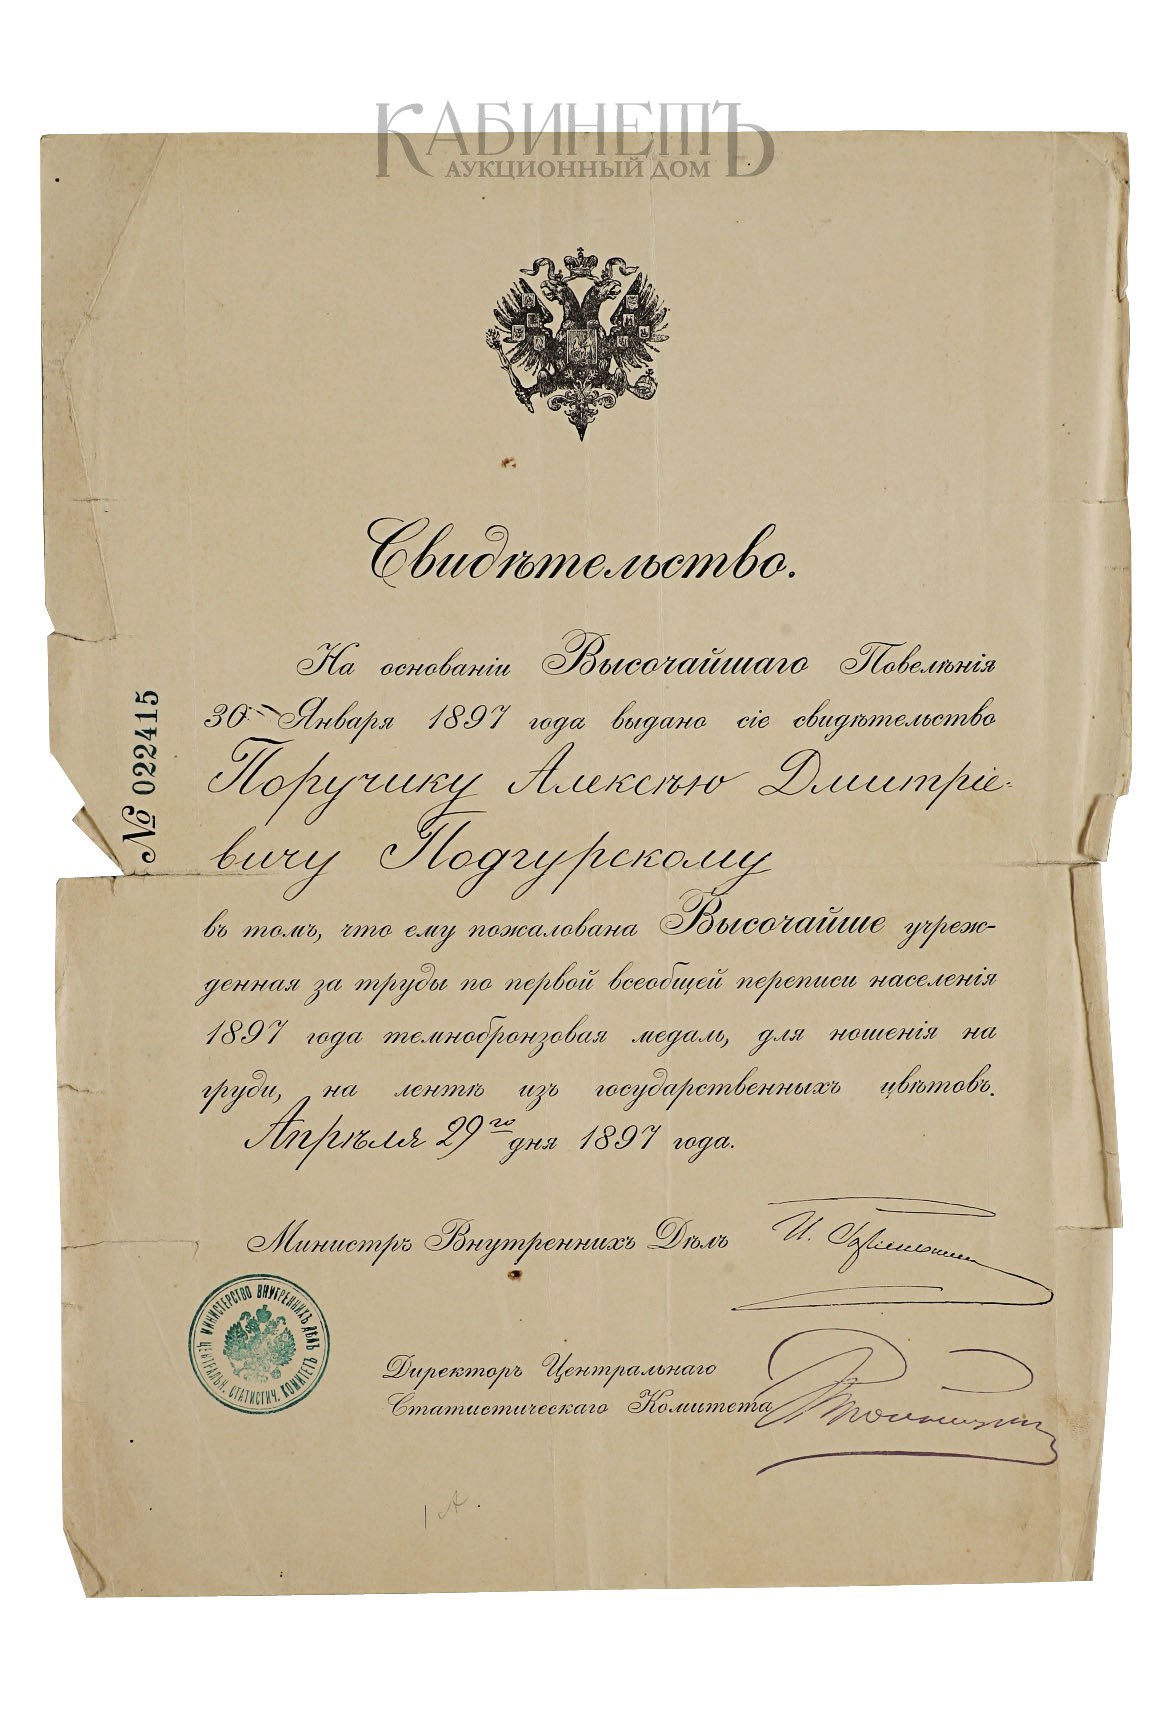 КАБИНЕТЪ
АУКЦИОННЫЙ ДОМ
Свидѣтельство.
На основаніи Высочайшаго Повелѣнія
30 Января 1897 года выдано сіе свидѣтельство
Поручику Алексѣю Дмитріе-
вичу Подгурскому
въ томъ, что ему пожалована Высочайше учреж-
денная за труды по первой всеобщей переписи населенія
1897 года темнобронзовая медаль, для ношенія на
груди, на лентѣ изъ государственныхъ цвѣтовъ.
Апрѣля 29го дня 1897 года.
№ 022415
Министръ Внутреннихъ Дѣлъ И.
МИНИСТЕРСТВО ВНУТРЕННИХЪ ДѢЛЪ
ЦЕНТРАЛЬН. СТАТИСТИЧ. КОМИТЕТЪ
Директоръ Центральнаго
Статистическаго Комитета